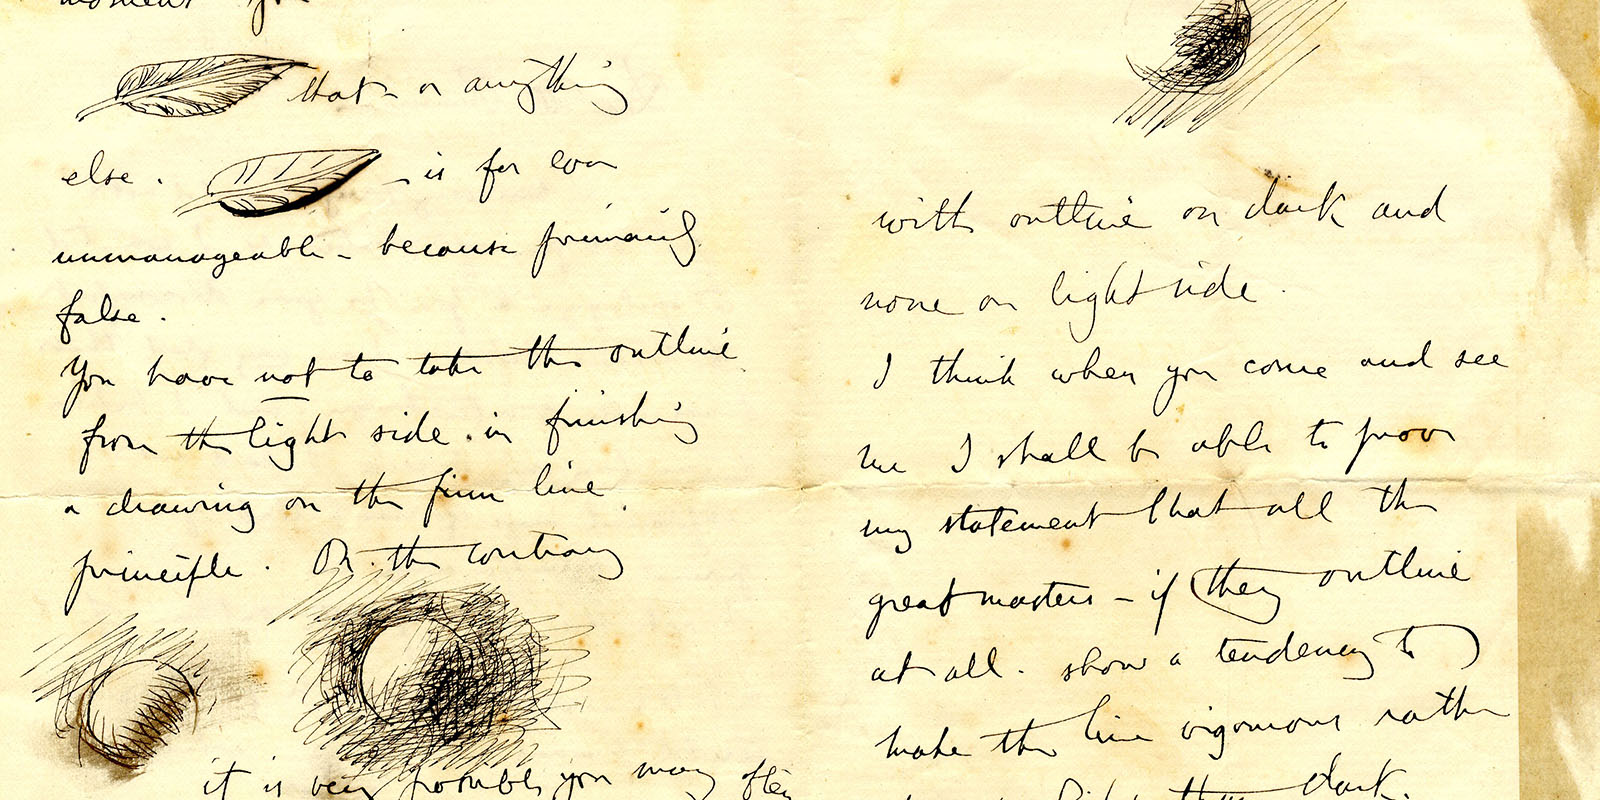 moment you
that - or anything
else. - is for ever
unmanageable - because primarily
false.
You have not to take the outline
from the light side. in finishing
a drawing on the firm line
principle. On the contrary
it is very possible you may often
with outline on dark and
none on light side.
I think when you come and see
me I shall be able to prove
my statement that all the
great masters - if they outline
at all. show a tendency to
make the line vigorous rather
the dark.